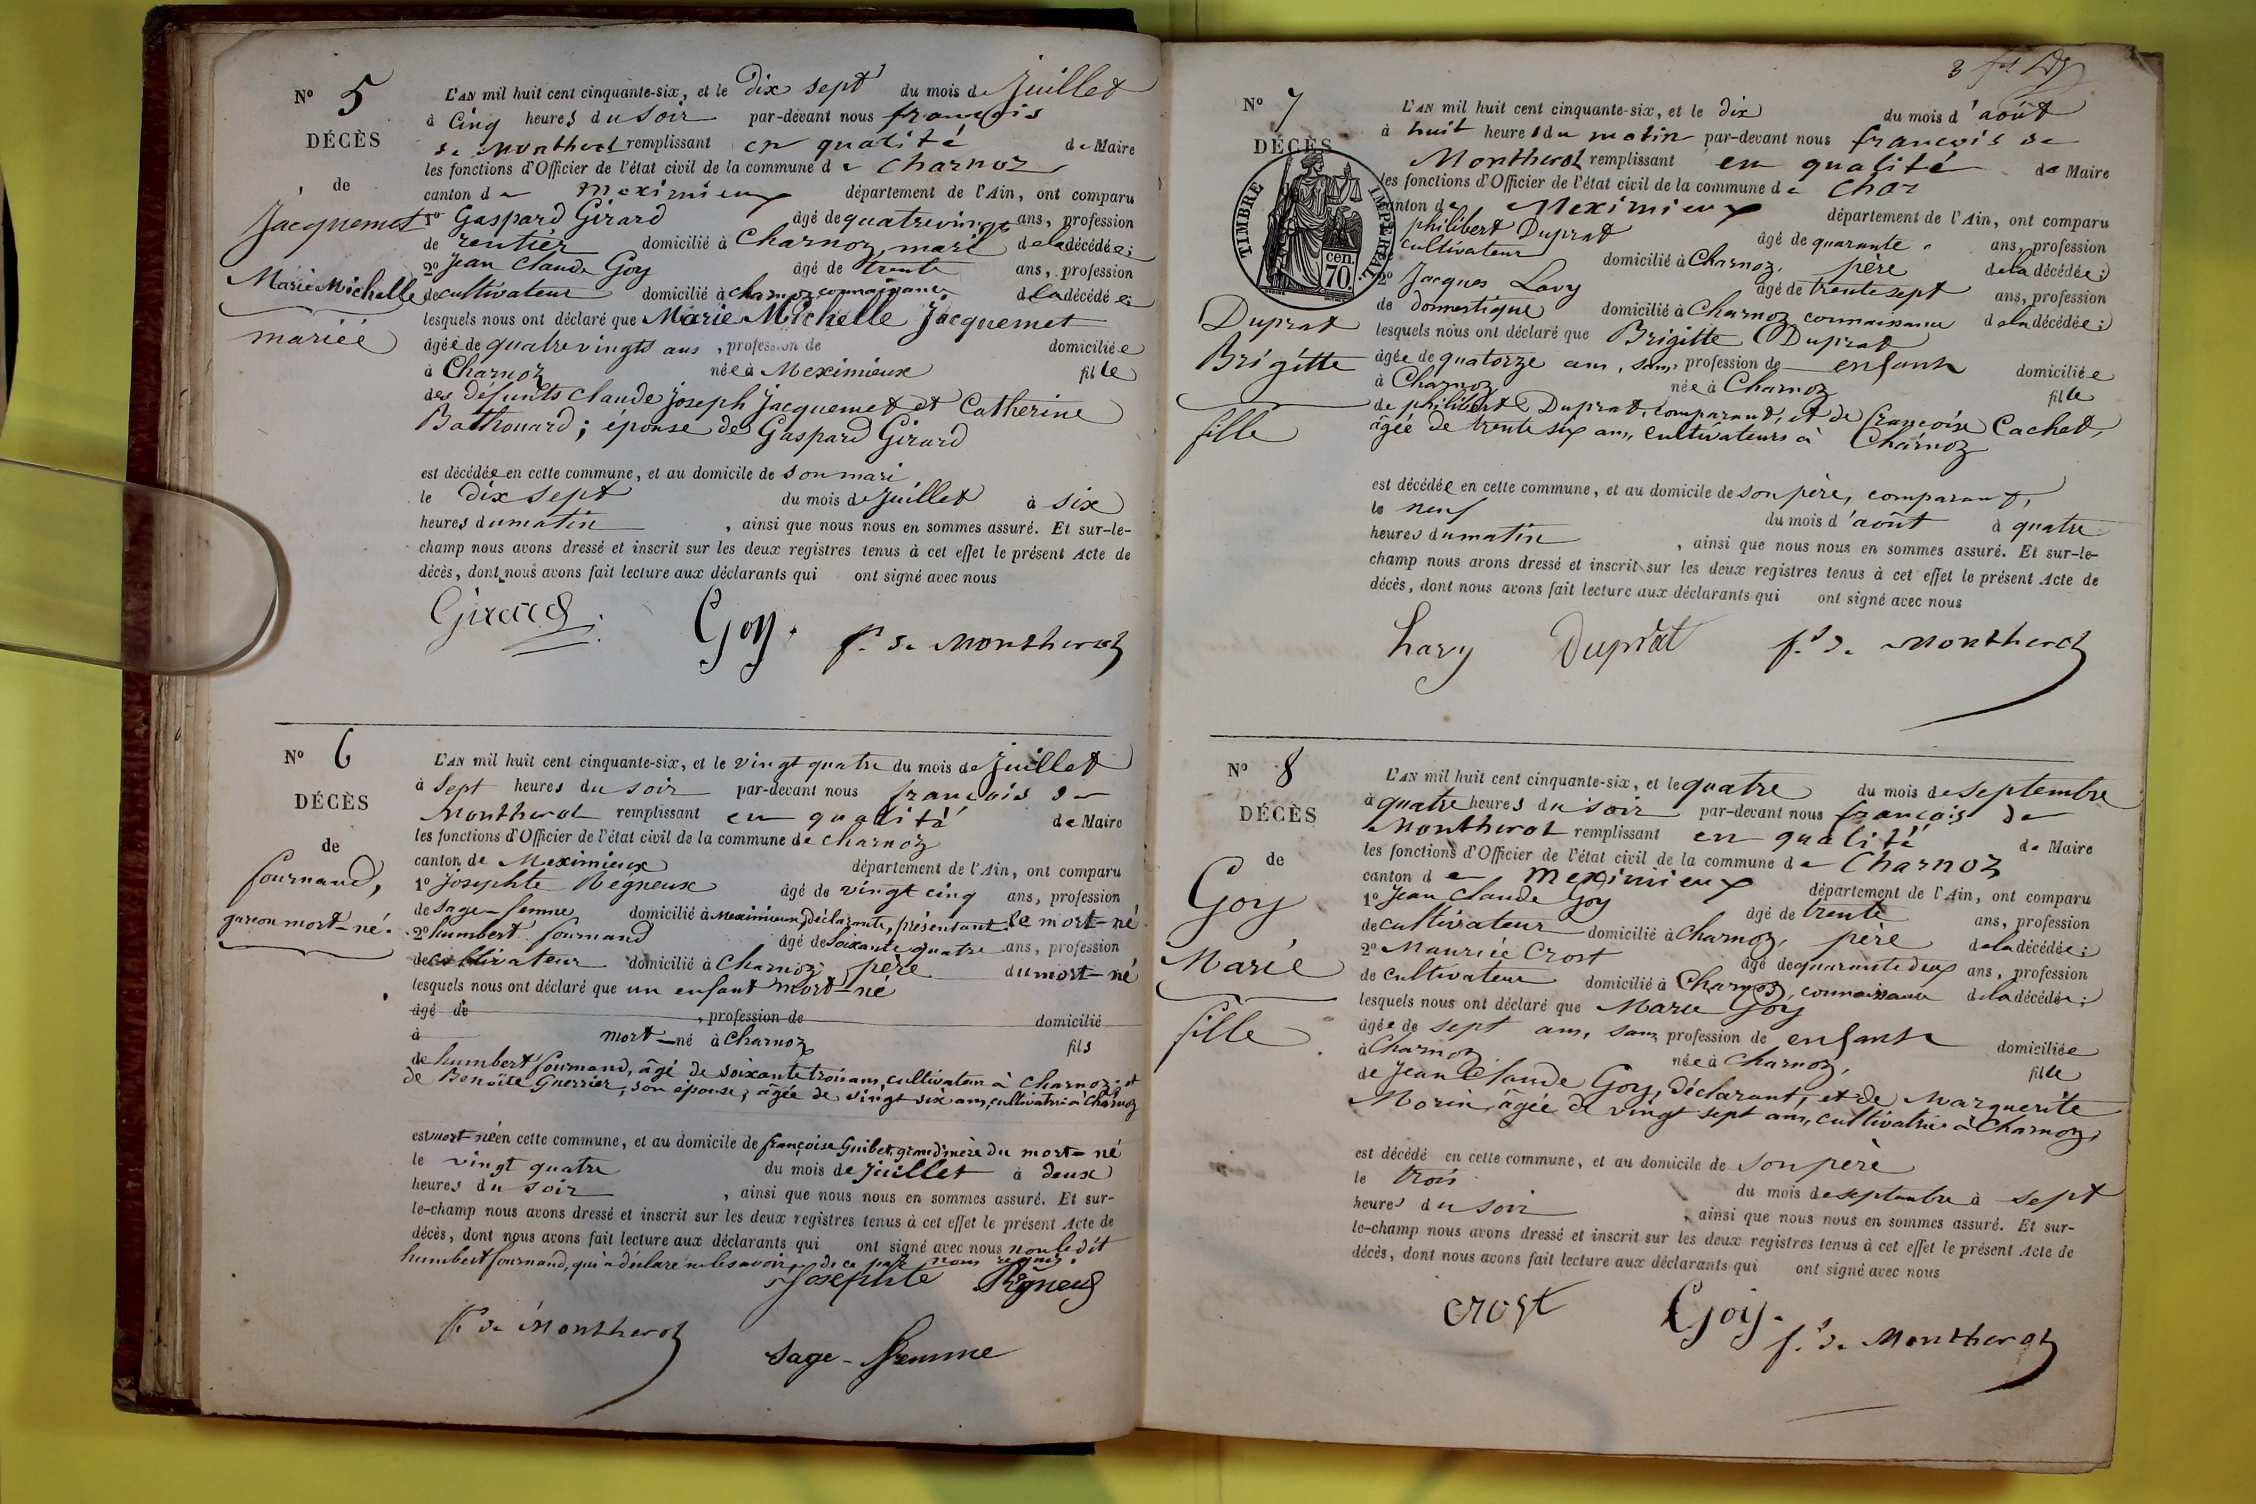 Nº 5
DÉCÈS
de
Jacquemet
Marie Michelle
mariée
L'AN mil huit cent cinquante-six, et le dix sept du mois de Juillet
à cinq heures du soir par-devant nous françois
de Montherot remplissant en qualité de Maire
les fonctions d'Officier de l'état civil de la commune de Charnoz
canton de Meximieux département de l'Ain, ont comparu
1º Gaspard Girard âgé de quatrevingt ans, profession
de rentier domicilié à Charnoz, mari de la décédée;
2º Jean Claude Goy âgé de trente ans, profession
de cultivateur domicilié à Charnoz connaissance de la décédée;
lesquels nous ont déclaré que Marie Michelle Jacquemet
âgée de quatrevingts ans, profession de domiciliée
à Charnoz née à Meximieux fille
des défunts Claude Joseph Jacquemet et Catherine
Bathouard; épouse de Gaspard Girard
est décédée en cette commune, et au domicile de son mari
le dix sept du mois de Juillet à six
heures du matin, ainsi que nous nous en sommes assuré. Et sur-le-
champ nous avons dressé et inscrit sur les deux registres tenus à cet effet le présent Acte de
décès, dont nous avons fait lecture aux déclarants qui ont signé avec nous
Girard Goy. f. de Montherot
Nº 6
DÉCÈS
de
fournand,
garçon mort-né.
L'AN mil huit cent cinquante-six, et le vingt quatre du mois de Juillet
à sept heures du soir par-devant nous françois de
Montherot remplissant en qualité de Maire
les fonctions d'Officier de l'état civil de la commune de Charnoz
canton de Meximieux département de l'Ain, ont comparu
1º Josephte Regneux âgé de vingt cinq ans, profession
de sage-femme domicilié à Meximieux, déclarante, présentant le mort-né
2º humbert fournand âgé de soixante quatre ans, profession
de cultivateur domicilié à Charnoz père du mort-né
lesquels nous ont déclaré que un enfant mort-né
âgé de , profession de domicilié
à mort-né à Charnoz fils
de humbert fournand, âgé de soixante trois ans, cultivateur à Charnoz, et
de Benoite Guerrier, son épouse, âgée de vingt six ans, cultivatrice à Charnoz
est mort-né en cette commune, et au domicile de françoise Guibet, grand'mère du mort-né
le vingt quatre du mois de Juillet à deux
heures du soir, ainsi que nous nous en sommes assuré. Et sur-
le-champ nous avons dressé et inscrit sur les deux registres tenus à cet effet le présent Acte de
décès, dont nous avons fait lecture aux déclarants qui ont signé avec nous non ledit
humbert fournand, qui a déclaré ne le savoir, de ce par nous requis.
Josephte Rigneux
f. de Montherot
Sage-femme
Nº 7
DÉCÈS
TIMBRE IMPÉRIAL
cen.
70.
Duprat
Brigitte
fille
L'AN mil huit cent cinquante-six, et le dix du mois d'août
à huit heures du matin par-devant nous françois de
Montherot remplissant en qualité de Maire
les fonctions d'Officier de l'état civil de la commune de Choz
canton de Meximieux département de l'Ain, ont comparu
philibert Duprat âgé de quarante ans, profession
cultivateur domicilié à Charnoz, père de la décédée;
2º Jacques Lavy âgé de trente sept ans, profession
de domestique domicilié à Charnoz connaissance de la décédée;
lesquels nous ont déclaré que Brigitte Duprat
âgée de quatorze ans, sans profession de enfant domiciliée
à Charnoz née à Charnoz fille
de philibert Duprat, comparant, et de françoise Cachet,
âgée de trente six ans, cultivateurs à Charnoz
est décédée en cette commune, et au domicile de son père, comparant,
le neuf du mois d'août à quatre
heures du matin, ainsi que nous nous en sommes assuré. Et sur-le-
champ nous avons dressé et inscrit sur les deux registres tenus à cet effet le présent Acte de
décès, dont nous avons fait lecture aux déclarants qui ont signé avec nous
Lavy Duprat f. de Montherot
Nº 8
DÉCÈS
de
Goy
Marie
fille
L'AN mil huit cent cinquante-six, et le quatre du mois de septembre
à quatre heures du soir par-devant nous françois de
Montherot remplissant en qualité de Maire
les fonctions d'Officier de l'état civil de la commune de Charnoz
canton de Meximieux département de l'Ain, ont comparu
1º Jean Claude Goy âgé de trente ans, profession
de cultivateur domicilié à Charnoz, père de la décédée;
2º Maurice Crost âgé de quarante deux ans, profession
de cultivateur domicilié à Charnoz, connaissance de la décédée;
lesquels nous ont déclaré que Marie Goy
âgée de sept ans, sans profession de enfant domiciliée
à Charnoz née à Charnoz, fille
de Jean Claude Goy, déclarant, et de Marguerite
Morin, âgée de vingt sept ans, cultivatrice à Charnoz,
est décédé en cette commune, et au domicile de son père
le trois du mois de septembre à sept
heures du soir, ainsi que nous nous en sommes assuré. Et sur-
le-champ nous avons dressé et inscrit sur les deux registres tenus à cet effet le présent Acte de
décès, dont nous avons fait lecture aux déclarants qui ont signé avec nous
Crost Goy. f. de Montherot